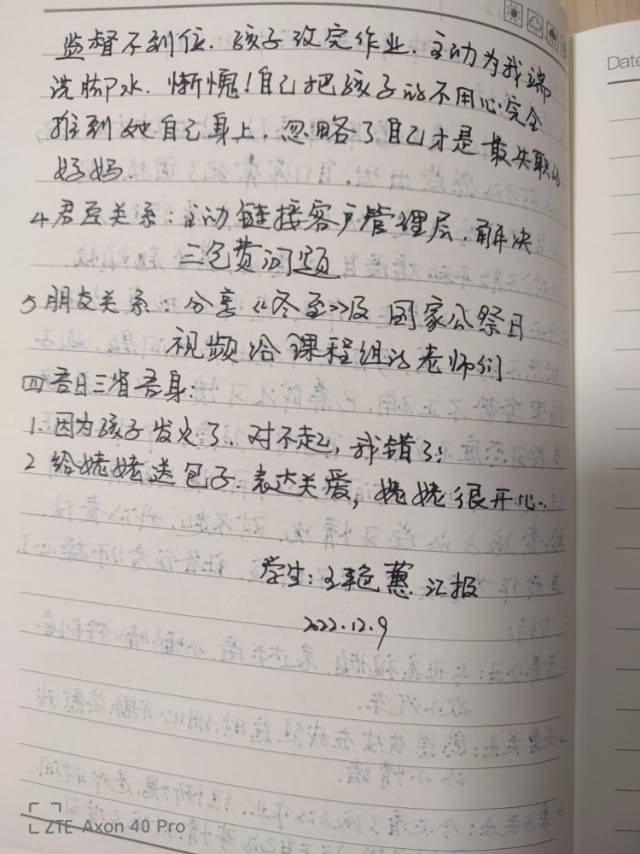 Date
监督不到位. 孩子改完作业. 主动为我端
洗脚水. 惭愧!自己把孩子的不用心完全
推到她自己身上, 忽略了自己才是最失职的
好妈妈.
4.君臣关系: 主动链接客户管理层, 解决
三包费问题
5 朋友关系: 分享《冬至》及 国家公祭日
视频给课程组的老师们
四吾日三省吾身:
1.因为孩子发火了. 对不起, 我错了!
2 给姥姥送包子. 表达关爱, 姥姥很开心.
学生: 王艳蕙 汇报
2022.12.9
ZTE Axon 40 Pro